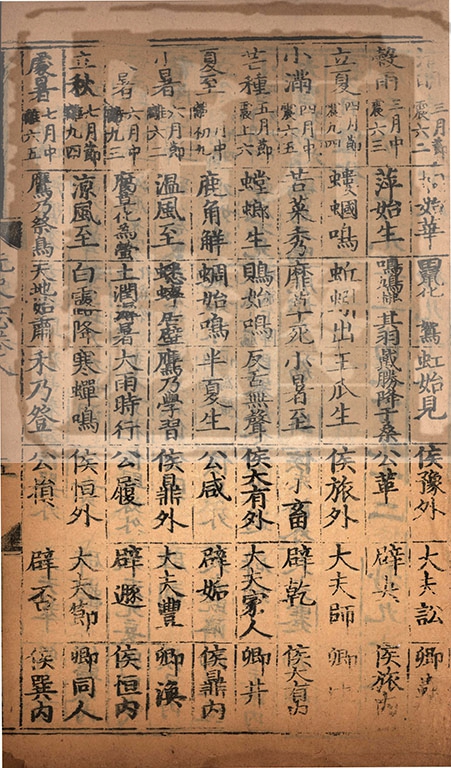 三月節 震六二 始華 鴽 虹始見 侯豫外 大夫訟 卿
穀雨 三月中 震六三 萍始生 鳴鳩 其羽 戴勝降于桑 公革 辟夬 侯旅
立夏 四月節 九四 螻蟈鳴 蚯蚓出 王瓜生 侯旅外 大夫師 卿
小滿 四月中 震六五 苦菜秀 靡草死 小暑至 侯小畜 辟乾 侯大有內
芒種 五月節 震上六 螳螂生 鵙始鳴 反舌無聲 侯大有外 大夫家人 卿井
夏至 月中 初九 鹿角解 蜩始鳴 半夏生 公咸 辟姤 侯鼎內
小暑 六月節 離六二 溫風至 蟋蟀居壁 鷹乃學習 侯鼎外 大夫豐 卿渙
暑 六月中 離九三 腐草化為螢 土潤溽暑 大雨時行 公履 辟遯 侯恒內
立秋 七月節 離九四 涼風至 白露降 寒蟬鳴 侯恒外 大夫節 卿同人
處暑 七月中 離六五 鷹乃祭鳥 天地始肅 禾乃登 公損 辟否 侯巽內